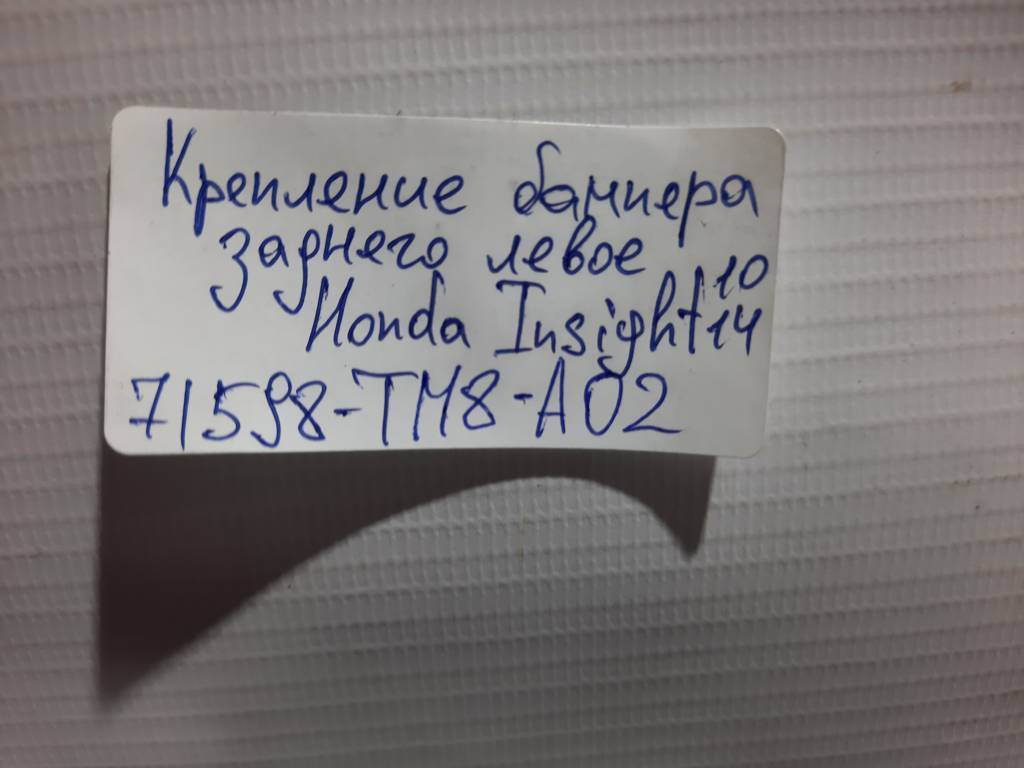 Крепление бампера
заднего левое
Honda Insight 10
14
71598-TM8-A02